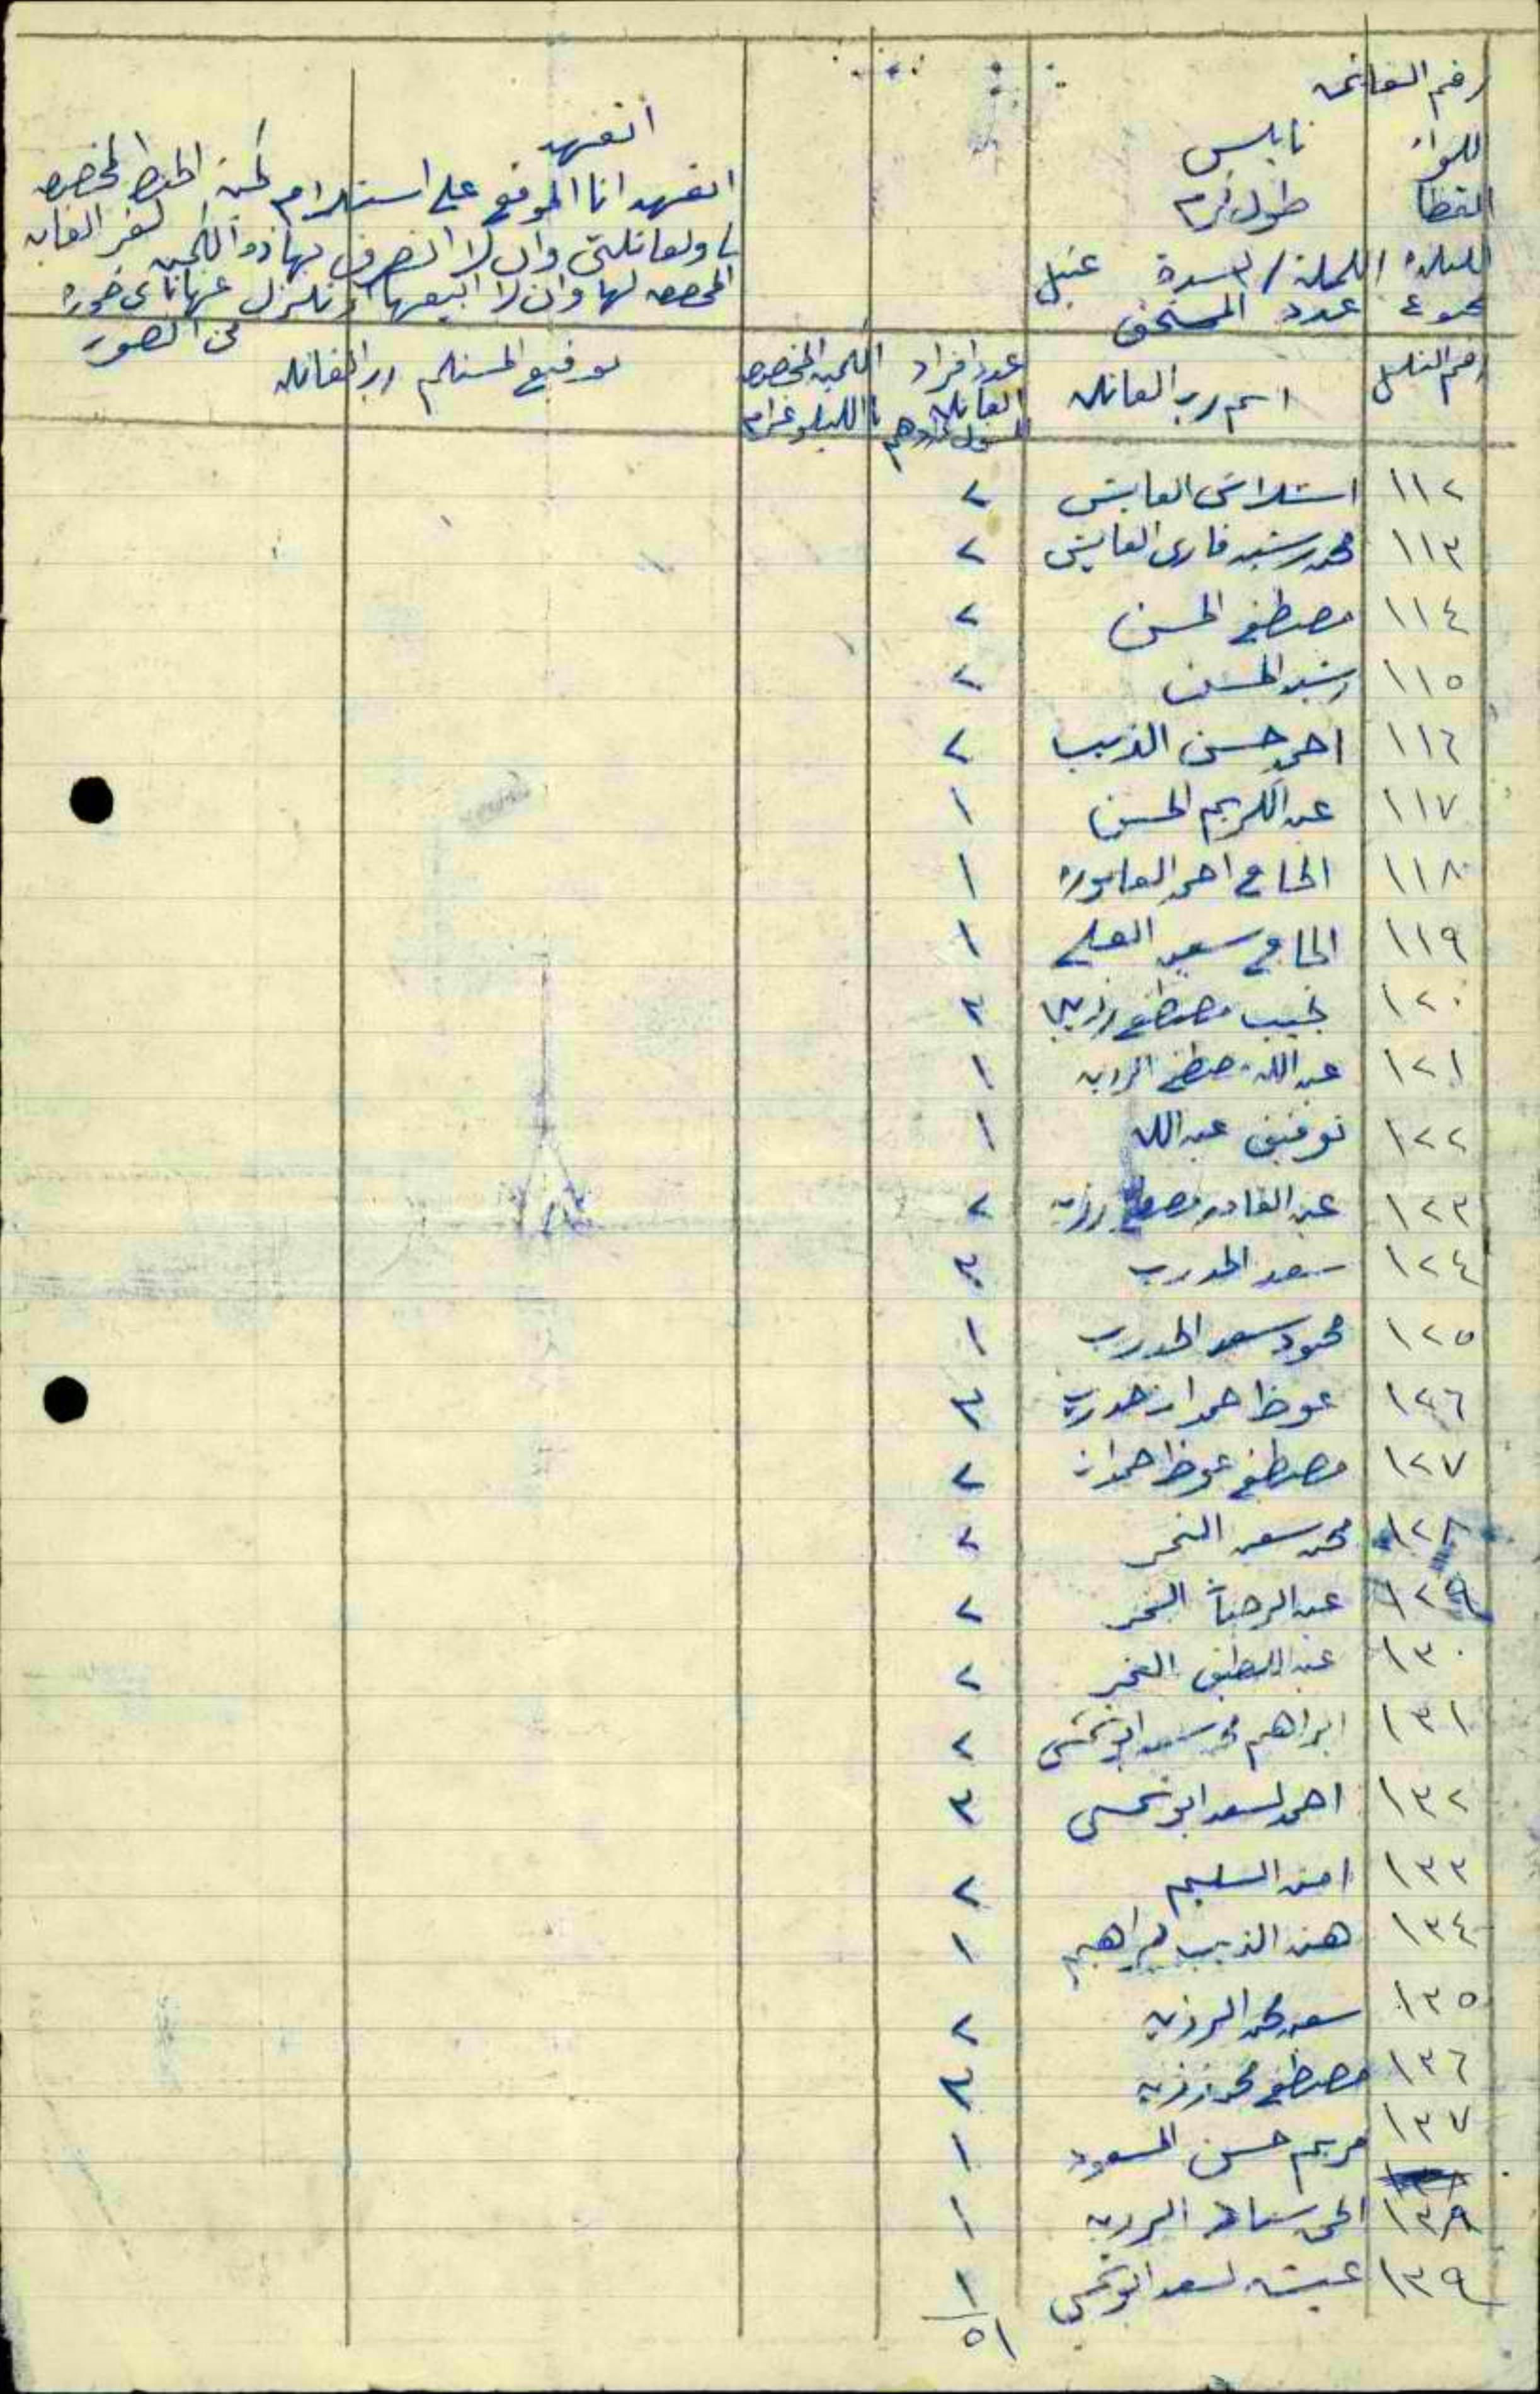 رقم القائمه
اللواء نابلس
القضا طولكرم
البلده المحلة / بلدة عتيل
مجموع عدد المستحق
اتعهد
اتعهد انا الموقع على استلام كمية الحنطه المخصصه
لي ولعائلتي وان لا اتصرف بهاذه الكميه لغير الغايه
المخصصه لها وان لا ابيعها او اتنازل عنها باي صوره
من الصور
رقم التسلسل
اسم رب العائله
عدد افراد العائله
الكميه المخصصه بالكيلو غرام
توقيع المستلم رب العائله
١١٢ العايش ٢
١١٣ محمد رشيد العايش ٢
١١٤ مصطفى الحسن ٢
١١٥ رشيد الحسن ٢
١١٦ احمد حسن الذيب ٢
١١٧ عبد الكريم الحسن ١
١١٨ الحاج احمد ١
١١٩ الحاج سعيد العلي ١
١٢٠ نجيب مصطفى رزيه ٣
١٢١ عبد الله مصطفى الرزيه ١
١٢٢ توفيق عبد الله ١
١٢٣ عبد القادر مصطفى رزيه ٢
١٢٤ سعد المدرب ٣
١٢٥ محمود سعد المدرب ١
١٢٦ عوظ حمدان ٣
١٢٧ مصطفى عوظ حمدان ٢
١٢٨ محمد سعيد النمر ٢
١٢٩ عبد الرحمن النمر ٢
١٣٠ عبد اللطيف النمر ٢
١٣١ ابراهيم محمد سعد ابو شمس ٢
١٣٢ احمد اسعد ابو شمس ٣
١٣٣ امنه السليم ٢
١٣٤ هند الذيب ابراهيم ١
١٣٥ سعيد محمد الرزيه ٢
١٣٦ مصطفى محمد رزيه ٣
١٣٧ مريم حسن المسعود ١
١٣٨ الرزيه ١
١٣٩ عيشه اسعد ابو شمس ١
٥١